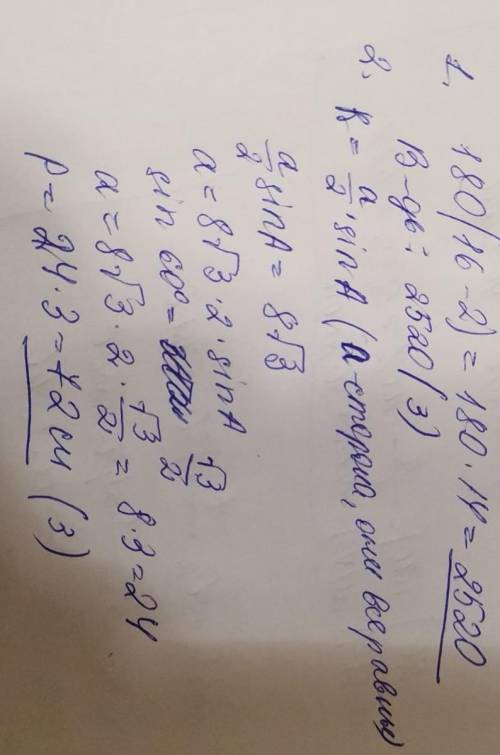 1. 180(16-2) = 180·14 = 2520
В-дь: 2520 (3)
2. R = a/2·sin A (а-сторона, они все равны)
a/2 sin A = 8√3
a = 8√3·2·sin A
sin 60° = √3/2
a = 8√3·2·√3/2 = 8·3=24
P = 24·3 = 72 см (3)